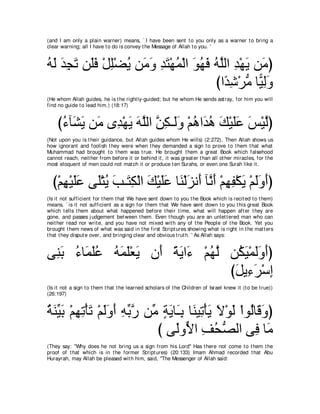 (and I am only a plain warner) means, ` I have been sent to you only as a warner to bring a clear warning; all I have to do is convey the Message of Allah to you. '
(مَن يَهْدِ اللَّهُ فَهُوَ الْمُهْتَدِ وَمَن يُضْلِلْ فَلَن تَجِدَ لَهُ
وَلِيًّا مُّرْشِدًا)
(He whom Allah guides, he is the rightly-guided; but he whom He sends astray, for him you will find no guide to lead him.) (18:17)
(لَّيْسَ عَلَيْكَ هُدَاهُمْ وَلَـكِنَّ اللَّهَ يَهْدِى مَن يَشَآءُ)
(Not upon you is their guidance, but Allah guides whom He wills) (2:272). Then Allah shows us how ignorant and foolish they were when they demanded a sign to prove to them that what Muhammad had brought to them was true. He brought them a great Book which falsehood cannot reach, neither from before it or behind it, it was greater than all other miracles, for the most eloquent of men could not match it or produce ten Surahs, or even one Surah like it.
(أَوَلَمْ يَكْفِهِمْ أَنَّآ أَنزَلْنَا عَلَيْكَ الْكِتَـبَ يُتْلَى عَلَيْهِمْ)
(Is it not sufficient for them that We have sent down to you the Book which is recited to them) means, ` is it not sufficient as a sign for them that We have sent down to you this great Book which tells them about what happened before their time, what will happen after they are gone, and passes judgement between them. Even though you are an unlettered man who can neither read nor write, and you have not mixed with any of the People of the Book. Yet you brought them news of what was said in the first Scriptures showing what is right in the matters that they dispute over, and bringing clear and obvious truth. ' As Allah says:
(أَوَلَمْ يَكُن لَّهُمْ ءَايَةً أَن يَعْلَمَهُ عُلَمَاءُ بَنِى
إِسْرَءِيلَ)
(Is it not a sign to them that the learned scholars of the Children of Israel knew it (to be true)) (26:197)
(وَقَالُواْ لَوْلاَ يَأْتِينَا بِـَايَةٍ مِّن رَّبِّهِ أَوَلَمْ تَأْتِهِم بَيِّنَةُ
مَا فِى الصُّحُفِ الأُولَى )
(They say: "Why does he not bring us a sign from his Lord" Has there not come to them the proof of that which is in the former Scriptures) (20:133). Imam Ahmad recorded that Abu Hurayrah, may Allah be pleased with him, said, "The Messenger of Allah said: